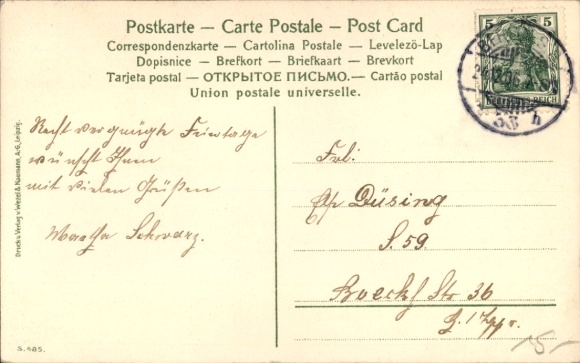 Postkarte — Carte Postale — Post Card
Correspondenzkarte — Cartolina Postale — Levelező-Lap
Dopisnice — Brefkort — Briefkaart — Brevkort
Tarjeta postal — ОТКРЫТОЕ ПИСЬМО. — Cartão postal
Union postale universelle.
5 5
REICH
Recht vergnügte Feiertage
wünscht Ihnen
mit vielen Grüßen
Martha Schwarz.
Frl.
Düsing
S. 59.
Boeckh Str 36
Druck u. Verlag v. Wezel & Naumann, A.-G., Leipzig.
S. 485.
15.-